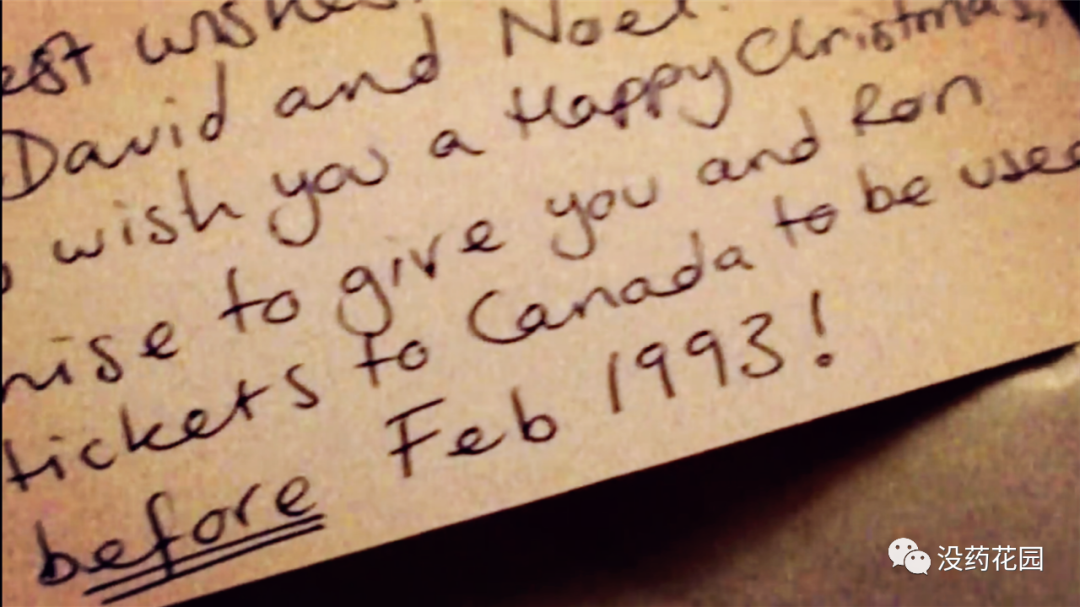 est wishes
David and Noel.
wish you a Happy Christmas,
mise to give you and Ron
tickets to Canada to be used
before Feb 1993!
没药花园